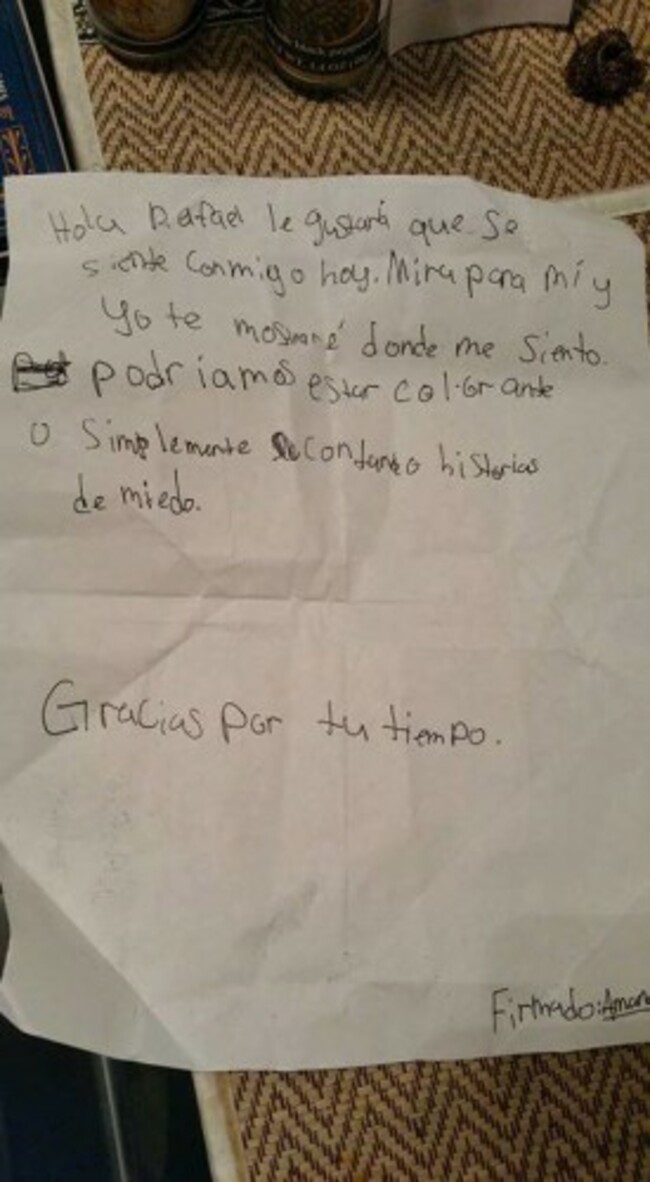 black pepper
Hola Rafael le gustará que se
siente conmigo hoy. Mira para mí y
Yo te mostraré donde me siento.
podríamos estar colorante
o Simplemente contando historias
de miedo.
Gracias por tu tiempo.
Firmado: Aman